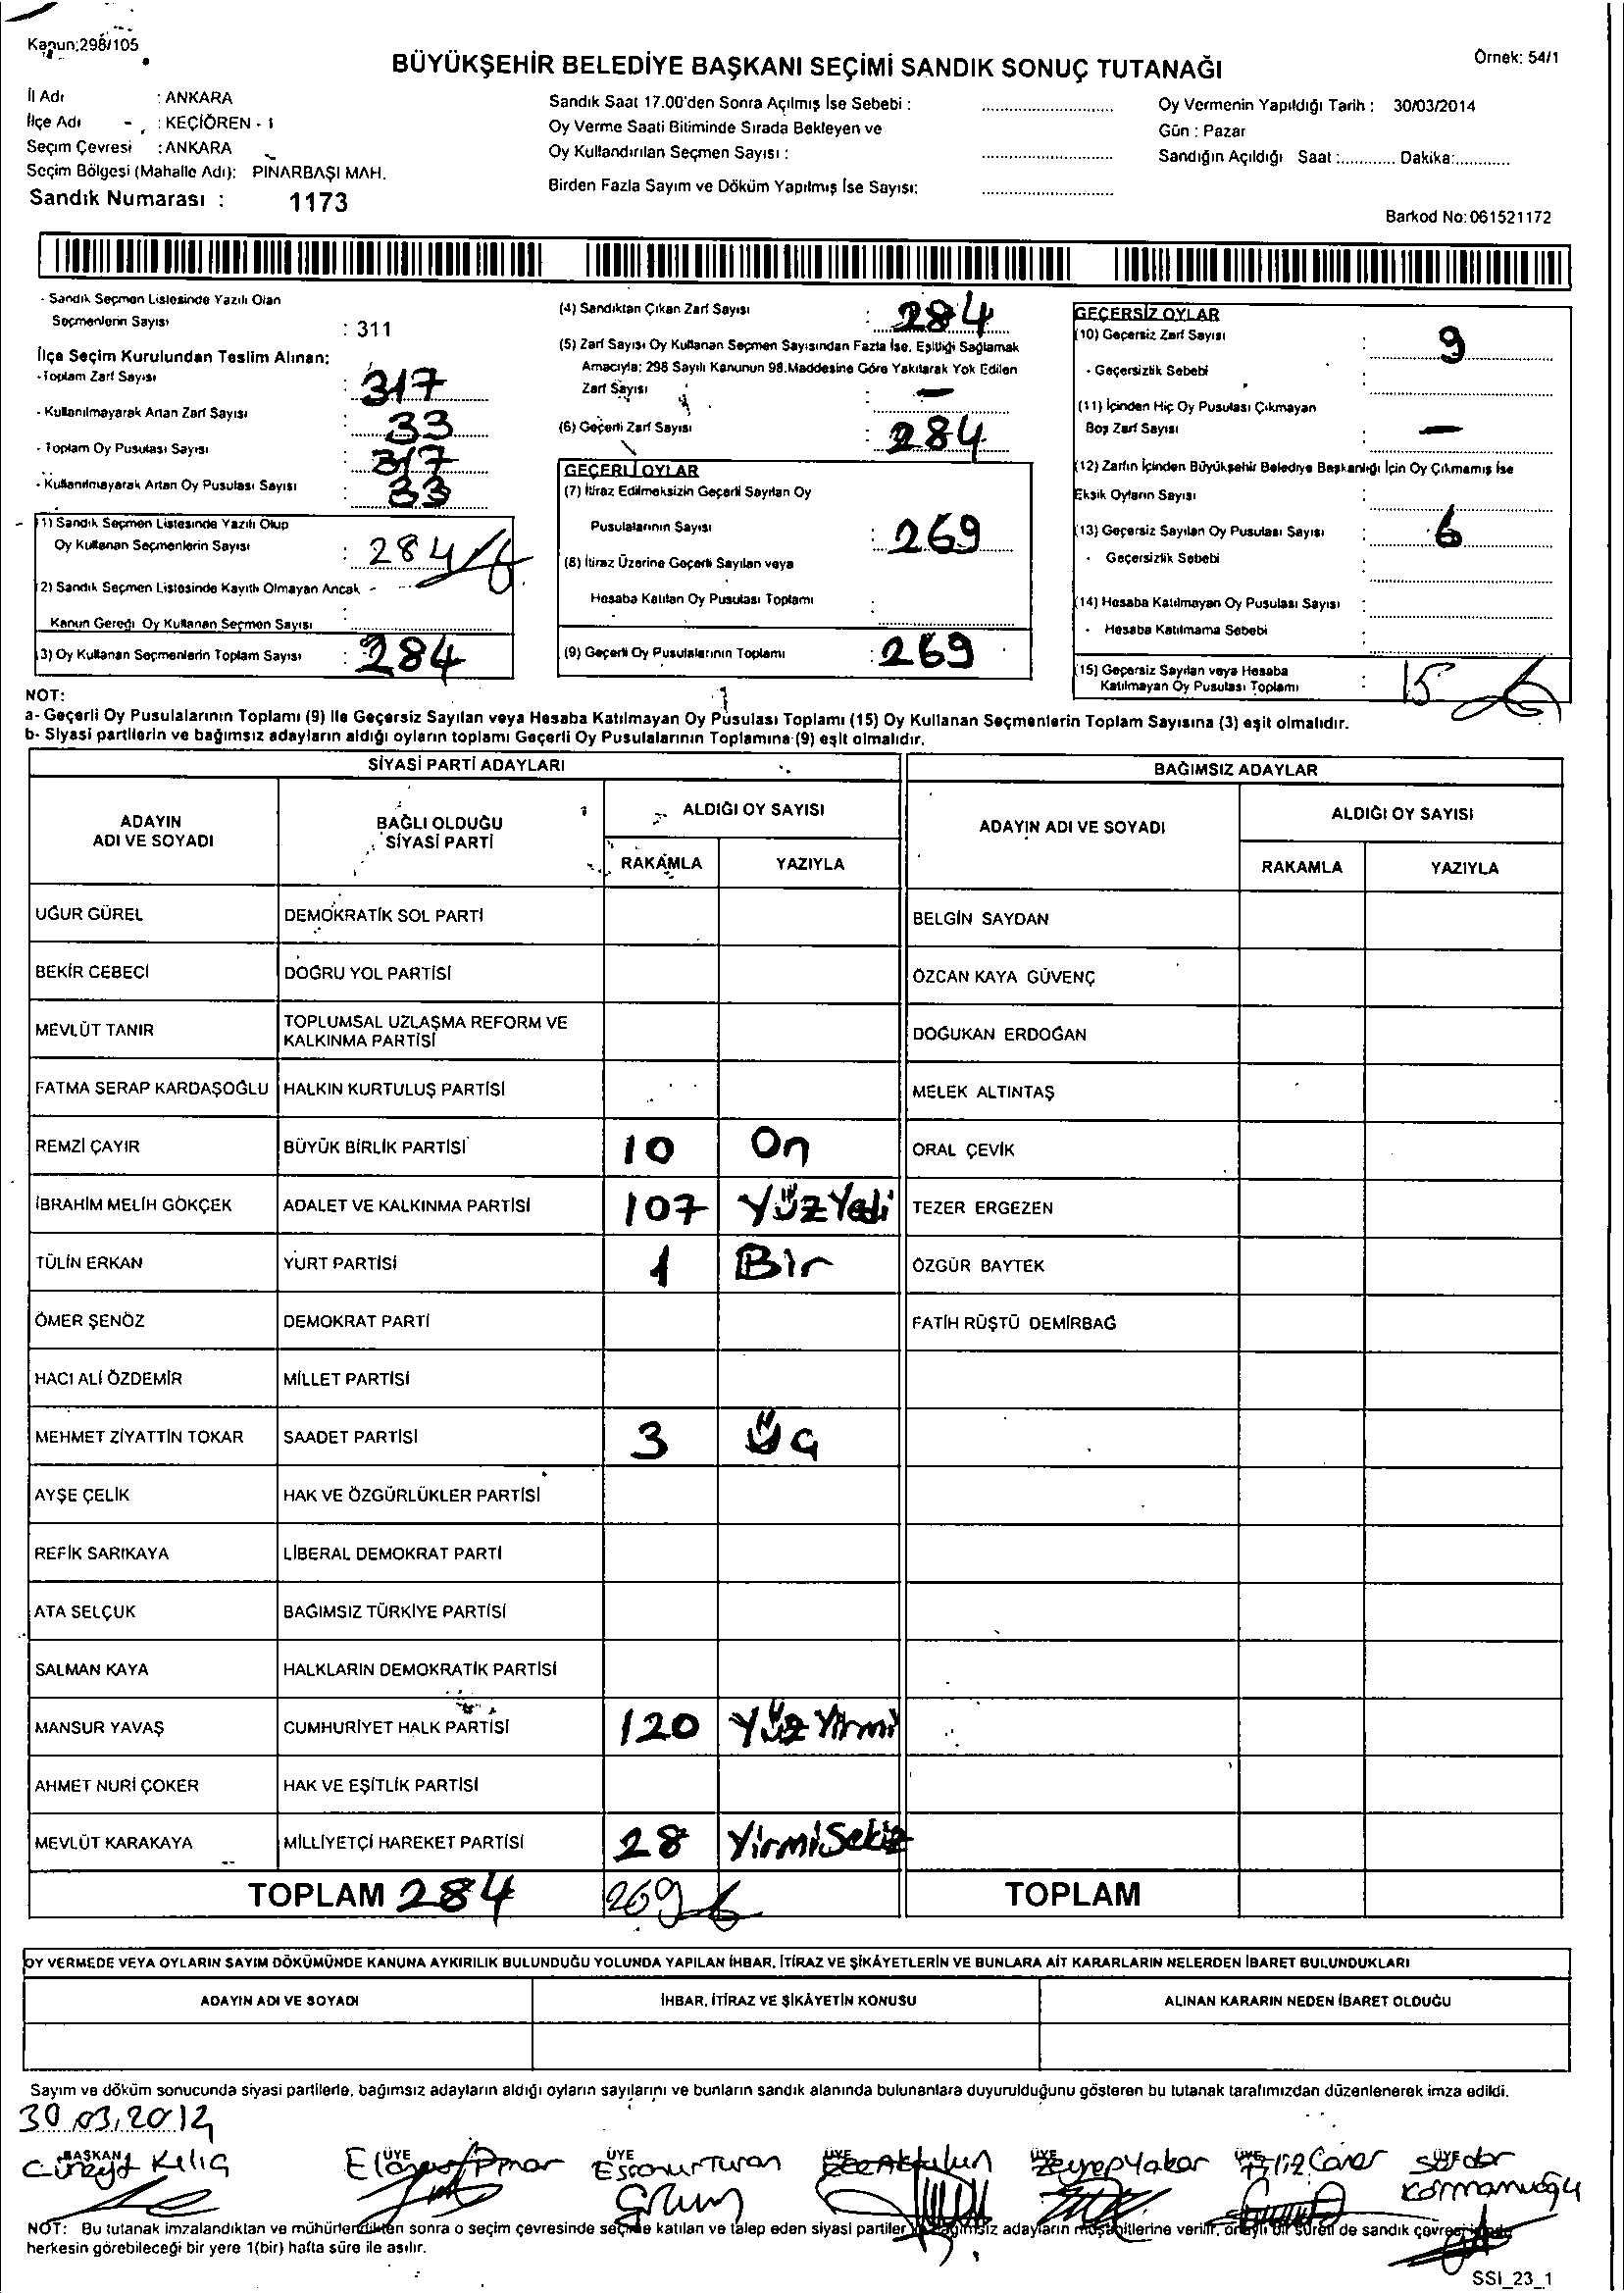 Kanun:298/105
BÜYÜKŞEHİR BELEDİYE BAŞKANI SEÇİMİ SANDIK SONUÇ TUTANAĞI
Örnek: 54/1
İl Adı : ANKARA
İlçe Adı : KEÇİÖREN - 1
Seçim Çevresi : ANKARA
Seçim Bölgesi (Mahalle Adı): PINARBAŞI MAH.
Sandık Numarası : 1173
Sandık Saat 17.00'den Sonra Açılmış İse Sebebi :
Oy Verme Saati Bitiminde Sırada Bekleyen ve
Oy Kullandırılan Seçmen Sayısı :
Birden Fazla Sayım ve Döküm Yapılmış İse Sayısı:
Oy Vermenin Yapıldığı Tarih : 30/03/2014
Gün : Pazar
Sandığın Açıldığı Saat :............ Dakika:............
Barkod No: 061521172
- Sandık Seçmen Listesinde Yazılı Olan
Seçmenlerin Sayısı : 311
İlçe Seçim Kurulundan Teslim Alınan:
- Toplam Zarf Sayısı : 317
- Kullanılmayarak Artan Zarf Sayısı : 33
- Toplam Oy Pusulası Sayısı : 317
- Kullanılmayarak Artan Oy Pusulası Sayısı : 33
(1) Sandık Seçmen Listesinde Yazılı Olup
Oy Kullanan Seçmenlerin Sayısı : 284
(2) Sandık Seçmen Listesinde Kayıtlı Olmayan Ancak
Kanun Gereği Oy Kullanan Seçmen Sayısı :
(3) Oy Kullanan Seçmenlerin Toplam Sayısı : 284
(4) Sandıktan Çıkan Zarf Sayısı : 284
(5) Zarf Sayısı Oy Kullanan Seçmen Sayısından Fazla İse, Eşitliği Sağlamak
Amacıyla; 298 Sayılı Kanunun 98.Maddesine Göre Yakılarak Yok Edilen
Zarf Sayısı : —
(6) Geçerli Zarf Sayısı : 284
GEÇERLİ OYLAR
(7) İtiraz Edilmeksizin Geçerli Sayılan Oy
Pusulalarının Sayısı : 269
(8) İtiraz Üzerine Geçerli Sayılan veya
Hesaba Katılan Oy Pusulası Toplamı :
(9) Geçerli Oy Pusulalarının Toplamı : 269
GEÇERSİZ OYLAR
(10) Geçersiz Zarf Sayısı : 9
- Geçersizlik Sebebi :
(11) İçinden Hiç Oy Pusulası Çıkmayan
Boş Zarf Sayısı : —
(12) Zarfın İçinden Büyükşehir Belediye Başkanlığı İçin Oy Çıkmamış İse
Eksik Oyların Sayısı :
(13) Geçersiz Sayılan Oy Pusulası Sayısı : 6
- Geçersizlik Sebebi :
(14) Hesaba Katılmayan Oy Pusulası Sayısı :
- Hesaba Katılmama Sebebi :
(15) Geçersiz Sayılan veya Hesaba
Katılmayan Oy Pusulası Toplamı : 15
NOT:
a- Geçerli Oy Pusulalarının Toplamı (9) İle Geçersiz Sayılan veya Hesaba Katılmayan Oy Pusulası Toplamı (15) Oy Kullanan Seçmenlerin Toplam Sayısına (3) eşit olmalıdır.
b- Siyasi partilerin ve bağımsız adayların aldığı oyların toplamı Geçerli Oy Pusulalarının Toplamına (9) eşit olmalıdır.
SİYASİ PARTİ ADAYLARI
BAĞIMSIZ ADAYLAR
ADAYIN ADI VE SOYADI
BAĞLI OLDUĞU SİYASİ PARTİ
ALDIĞI OY SAYISI
RAKAMLA YAZIYLA
ADAYIN ADI VE SOYADI
ALDIĞI OY SAYISI
RAKAMLA YAZIYLA
UĞUR GÜREL DEMOKRATİK SOL PARTİ BELGİN SAYDAN
BEKİR CEBECİ DOĞRU YOL PARTİSİ ÖZCAN KAYA GÜVENÇ
MEVLÜT TANIR TOPLUMSAL UZLAŞMA REFORM VE KALKINMA PARTİSİ DOĞUKAN ERDOĞAN
FATMA SERAP KARDAŞOĞLU HALKIN KURTULUŞ PARTİSİ MELEK ALTINTAŞ
REMZİ ÇAYIR BÜYÜK BİRLİK PARTİSİ 10 On ORAL ÇEVİK
İBRAHİM MELİH GÖKÇEK ADALET VE KALKINMA PARTİSİ 107 YüzYedi TEZER ERGEZEN
TÜLİN ERKAN YURT PARTİSİ 1 Bir ÖZGÜR BAYTEK
ÖMER ŞENÖZ DEMOKRAT PARTİ FATİH RÜŞTÜ DEMİRBAĞ
HACI ALİ ÖZDEMİR MİLLET PARTİSİ
MEHMET ZİYATTİN TOKAR SAADET PARTİSİ 3 Üç
AYŞE ÇELİK HAK VE ÖZGÜRLÜKLER PARTİSİ
REFİK SARIKAYA LİBERAL DEMOKRAT PARTİ
ATA SELÇUK BAĞIMSIZ TÜRKİYE PARTİSİ
SALMAN KAYA HALKLARIN DEMOKRATİK PARTİSİ
MANSUR YAVAŞ CUMHURİYET HALK PARTİSİ 120 Yüz Yirmi
AHMET NURİ ÇOKER HAK VE EŞİTLİK PARTİSİ
MEVLÜT KARAKAYA MİLLİYETÇİ HAREKET PARTİSİ 28 YirmiSekiz
TOPLAM 284 269 TOPLAM
OY VERMEDE VEYA OYLARIN SAYIM DÖKÜMÜNDE KANUNA AYKIRILIK BULUNDUĞU YOLUNDA YAPILAN İHBAR, İTİRAZ VE ŞİKAYETLERİN VE BUNLARA AİT KARARLARIN NELERDEN İBARET BULUNDUKLARI
ADAYIN ADI VE SOYADI İHBAR, İTİRAZ VE ŞİKAYETİN KONUSU ALINAN KARARIN NEDEN İBARET OLDUĞU
Sayım ve döküm sonucunda siyasi partilerle, bağımsız adayların aldığı oyların sayılarını ve bunların sandık alanında bulunanlara duyurulduğunu gösteren bu tutanak tarafımızdan düzenlenerek imza edildi.
30.03.2014
BAŞKAN ÜYE ÜYE ÜYE ÜYE ÜYE ÜYE
Cüneyt Kılıç Esranur Turan Zeynep Yakar Serdar
NOT: Bu tutanak imzalandıktan ve mühürlendikten sonra o seçim çevresinde seçime katılan ve talep eden siyasi partiler bağımsız adayların müşahitlerine verilir, onaylı bir sureti de sandık çevresinde
herkesin görebileceği bir yere 1(bir) hafta süre ile asılır.
SSI_23_1